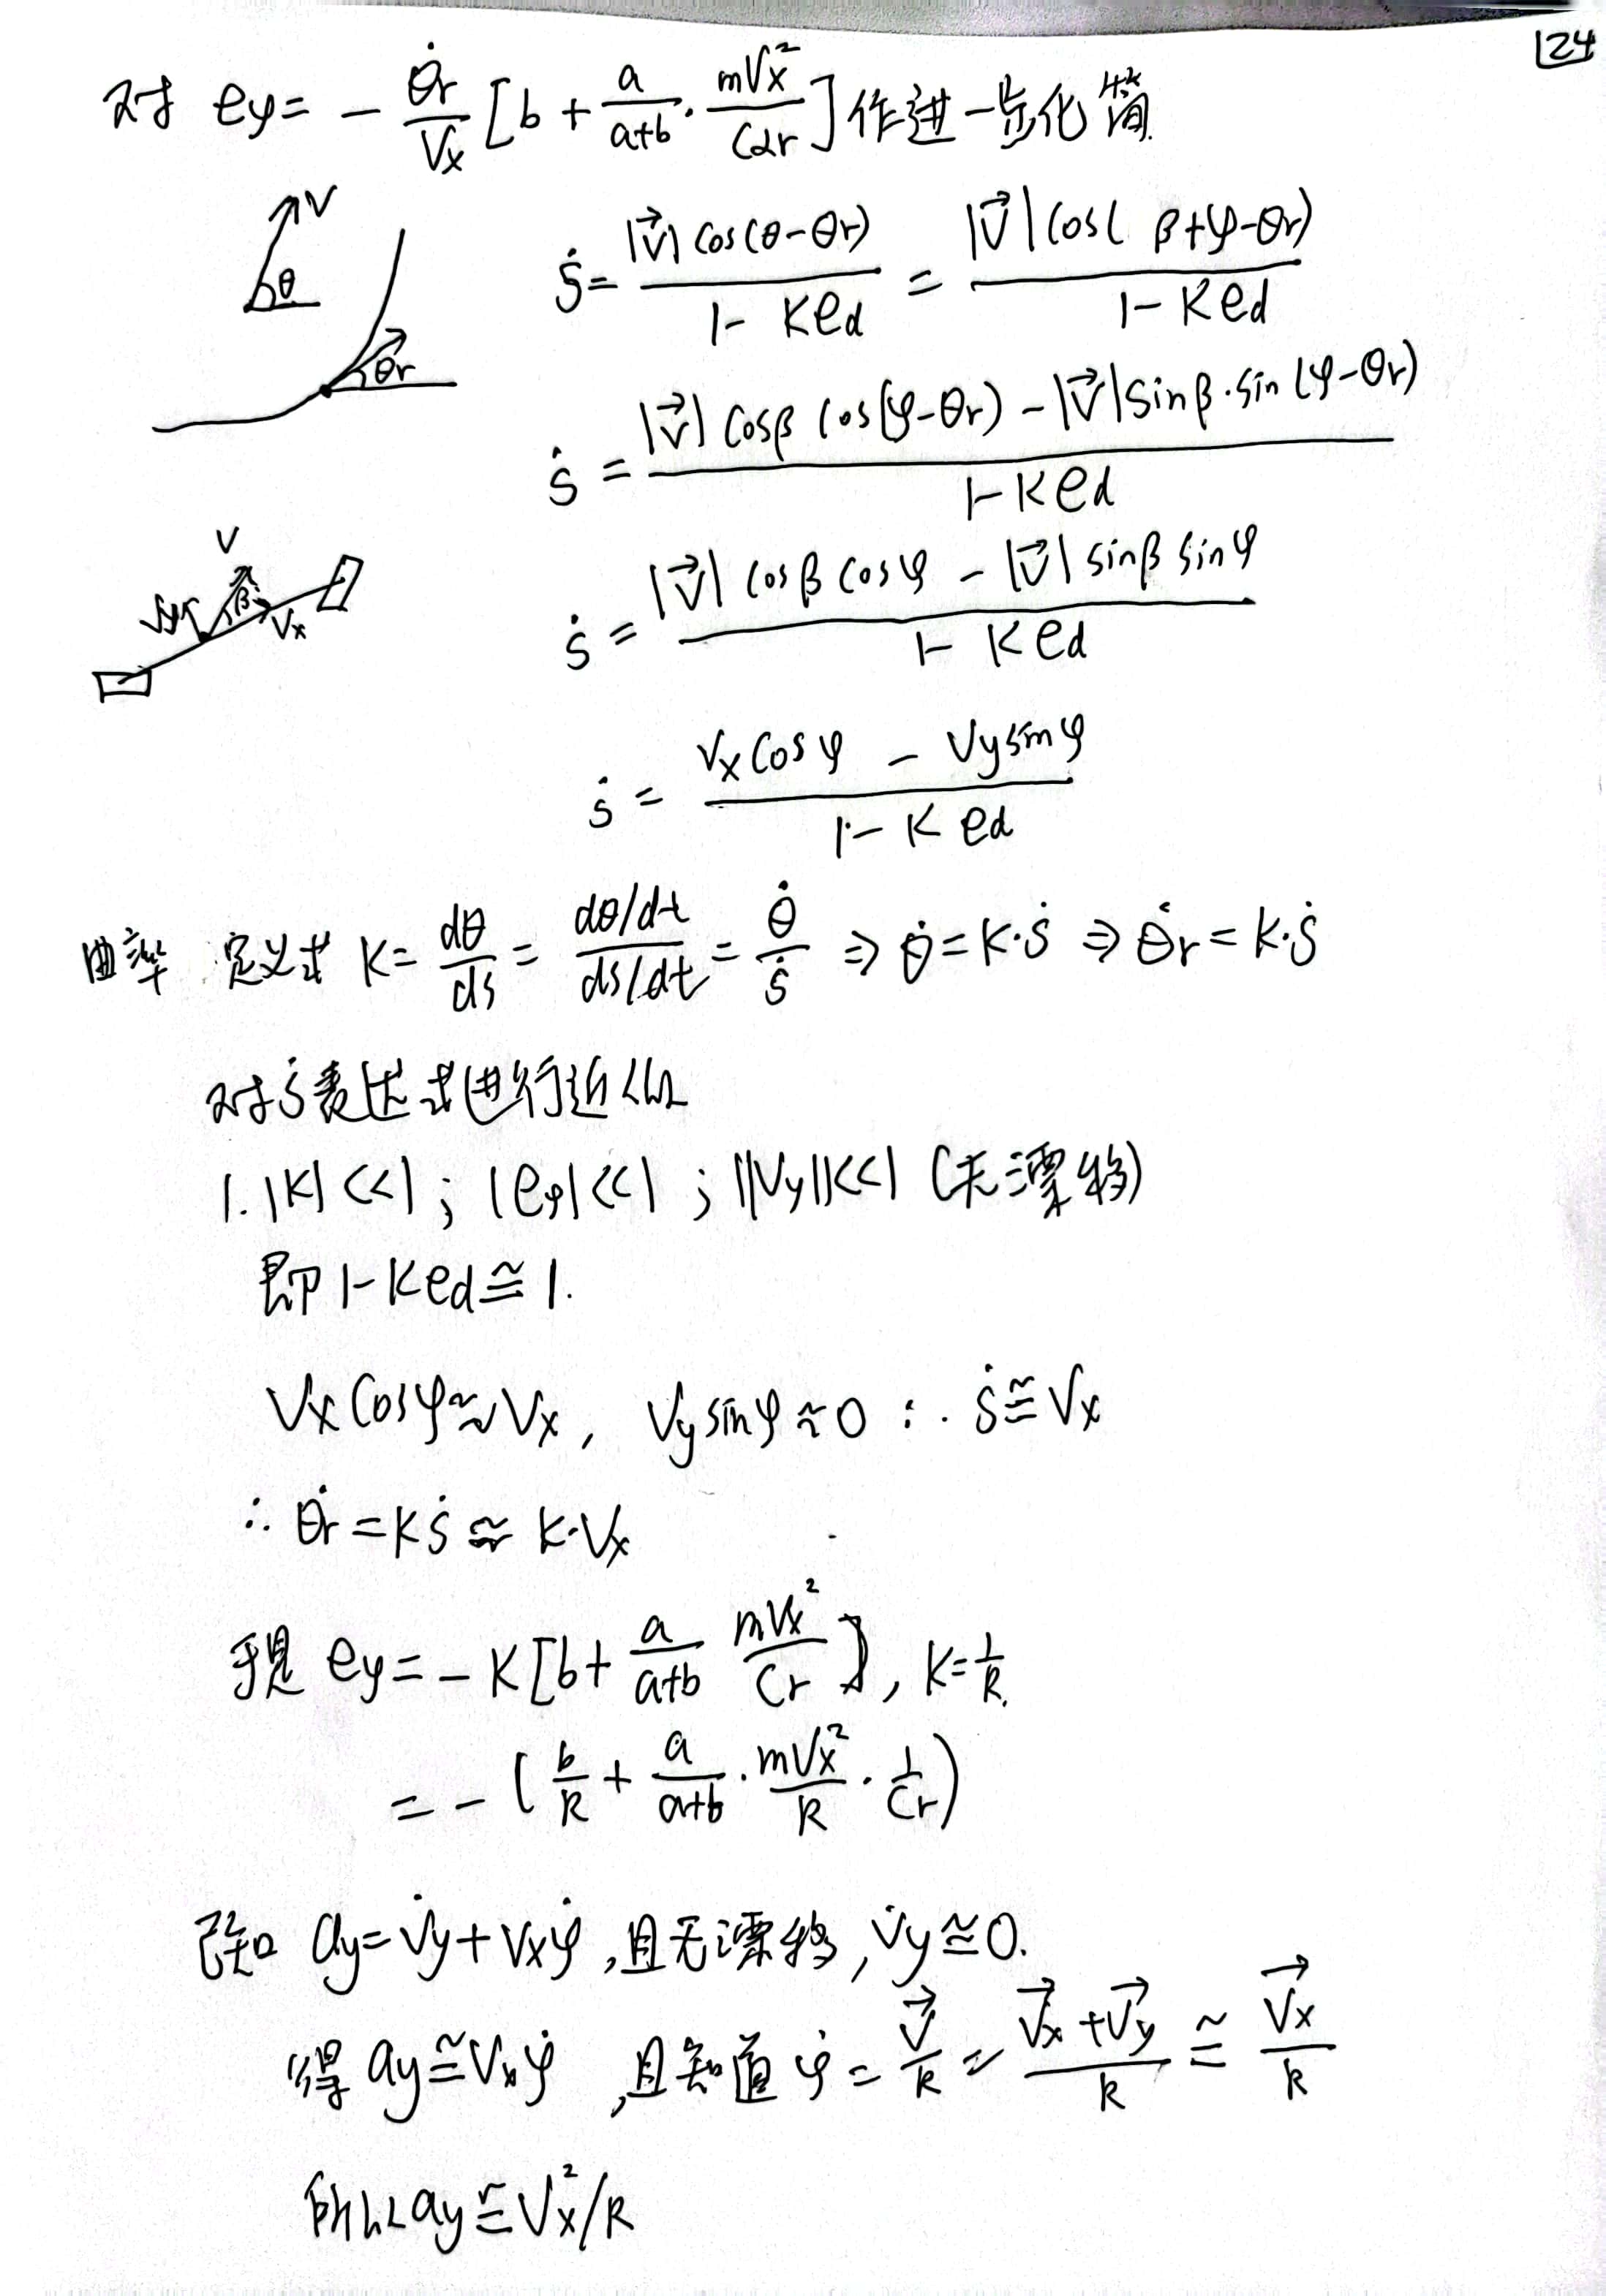 124
对 eφ = - θ̇r/Vx [b + a/(a+b) · mVx²/Cαr] 作进一步化简
V
θ
θr
ṡ = |V⃗| cos(θ-θr) / (1-Ked) = |V⃗| cos(β+φ-θr) / (1-Ked)
ṡ = (|V⃗| cosβ cos(φ-θr) - |V⃗| sinβ·sin(φ-θr)) / (1-Ked)
V
β
Vx
ṡ = (|V⃗| cosβ cosφ - |V⃗| sinβ sinφ) / (1-Ked)
ṡ = (Vx cosφ - Vy sinφ) / (1-Ked)
曲率 定义式 K = dθ/ds = (dθ/dt)/(ds/dt) = θ̇/ṡ ⇒ θ̇ = K·ṡ ⇒ θ̇r = K·ṡ
对ṡ表达式进行近似
1. |K|<<1 ; |eφ|<<1 ; ||Vy||<<1 (无漂移)
即 1-Ked ≅ 1.
Vx cosφ ≈ Vx , Vy sinφ ≈ 0 ∴ ṡ ≅ Vx
∴ θ̇r = Kṡ ≅ K·Vx
于是 eφ = - K [b + a/(a+b) mVx²/Cr] , K = 1/R.
= - (b/R + a/(a+b) · mVx²/R · 1/Cr)
已知 ay = V̇y + Vxφ̇ , 且无漂移, V̇y ≅ 0.
得 ay ≅ Vxφ̇ , 且知道 φ̇ = V⃗/R = (V⃗x + V⃗y)/R ≅ V⃗x/R
所以 ay ≅ Vx²/R